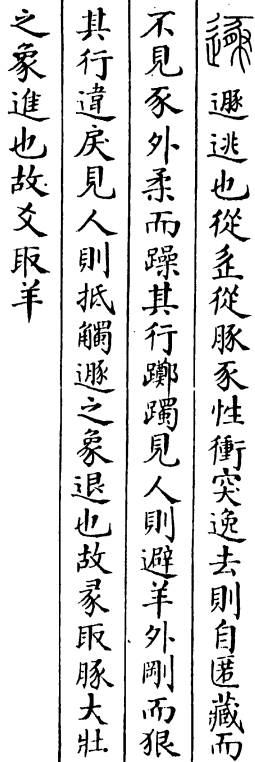 遯遯逃也從辵從豚豕性衝突逸去則自匿藏而
不見豕外柔而躁其行躑躅見人則避羊外剛而狠
其行違戾見人則抵觸遯之象退也故彖取豚大壯
之象進也故爻取羊